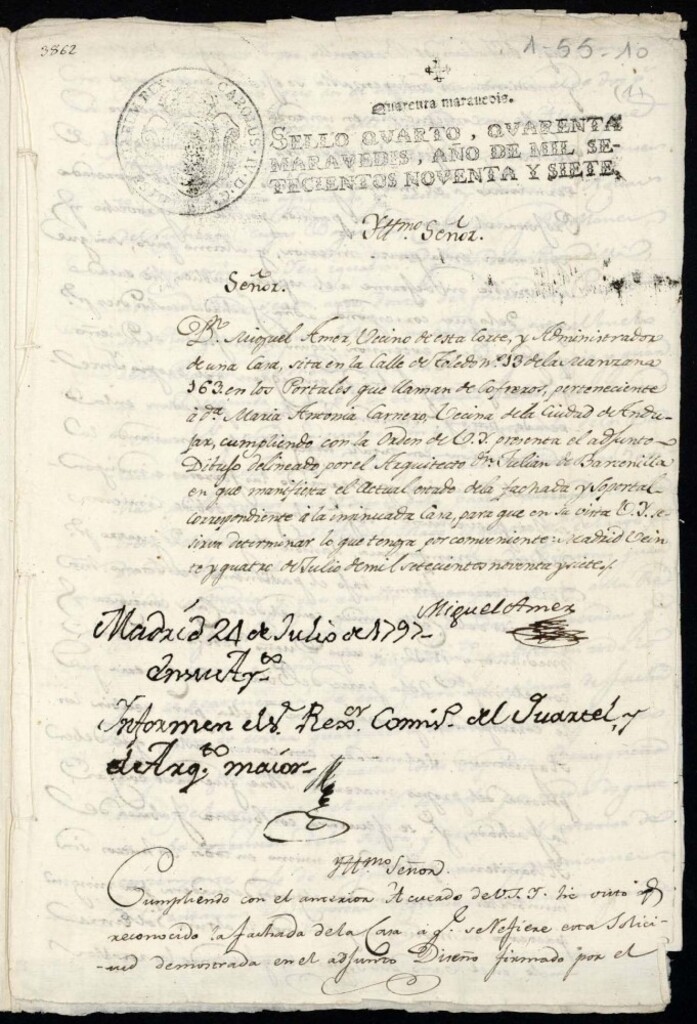 3862
1-55-10
(1)
Quarenta maravedis.
SELLO QVARTO, QVARENTA
MARAVEDIS, AÑO DE MIL SE-
TECIENTOS NOVENTA Y SIETE.
CAROLUS IV D. G.
Yttmo. Señor.
Señor.
Dn. Miguel Amer, Vecino de esta Corte, y Administrador
de una Casa, sita en la Calle de Toledo nº. 13 de la Manzana
163. en los Portales que llaman de Cofreros, perteneciente
á dña. Maria Antonia Carnero, Vecina de la Ciudad de Andu-
jar, cumpliendo con la Orden de V. Y. presenta el adjunto
Dibujo delineado por el Arquitecto dn. Julian de Barcenilla
en que manifiesta el actual estado de la fachada y Soportal
correspondiente á la insinuada Casa, para que en su vista V. Y. se
sirva determinar lo que tenga por conveniente. Madrid Vein-
te y quatro de Julio de mil setecientos noventa y siete.
Miguel Amer
Madrid 24 de Julio de 1797
En su Ayto.
Informen el Sr. Rexor. Comiso. del Quartel, y
el Arqto. maior
Yttmo Señor.
Cumpliendo con el anterior Acuerdo de V. S. Y. he visto y
reconocido la fachada de la Casa á qe. se refiere esta Solici-
-tud demostrada en el adjunto Diseño firmado por el